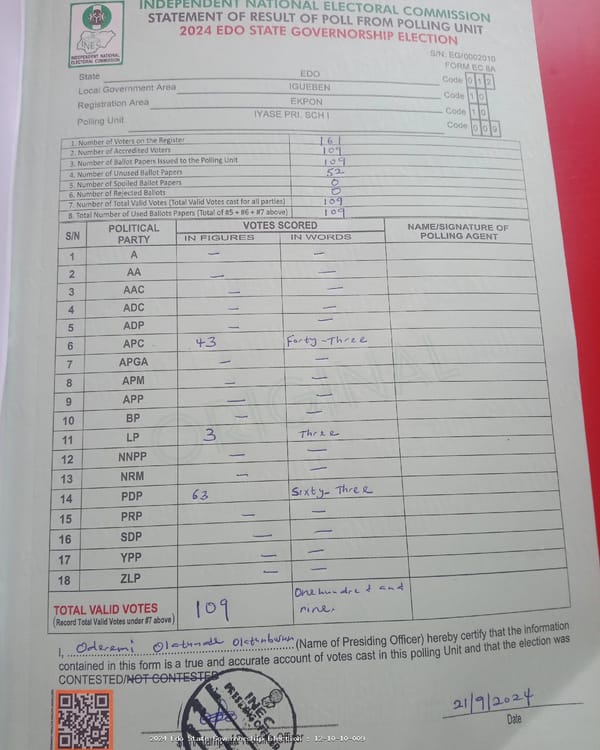 INDEPENDENT NATIONAL ELECTORAL COMMISSION
STATEMENT OF RESULT OF POLL FROM POLLING UNIT
2024 EDO STATE GOVERNORSHIP ELECTION
INEC
INDEPENDENT NATIONAL
ELECTORAL COMMISSION
S/N: EG/0002010
FORM EC 8A
State EDO Code 0 1 2
Local Government Area IGUEBEN Code 1 0
Registration Area EKPON Code 1 0
Polling Unit IYASE PRI. SCH I Code 0 0 9
1. Number of Voters on the Register 161
2. Number of Accredited Voters 109
3. Number of Ballot Papers Issued to the Polling Unit 109
4. Number of Unused Ballot Papers 52
5. Number of Spoiled Ballot Papers 0
6. Number of Rejected Ballots 0
7. Number of Total Valid Votes (Total Valid Votes cast for all parties) 109
8. Total Number of Used Ballots Papers (Total of #5 + #6 + #7 above) 109
S/N POLITICAL PARTY VOTES SCORED NAME/SIGNATURE OF POLLING AGENT
IN FIGURES IN WORDS
1 A — —
2 AA — —
3 AAC — —
4 ADC — —
5 ADP — —
6 APC 43 Forty-Three
7 APGA — —
8 APM — —
9 APP — —
10 BP — —
11 LP 3 Three
12 NNPP — —
13 NRM — —
14 PDP 63 Sixty-Three
15 PRP — —
16 SDP — —
17 YPP — —
18 ZLP — —
ORIGINAL
TOTAL VALID VOTES 109 One hundred and
(Record Total Valid Votes under #7 above) nine.
I, (Name of Presiding Officer) hereby certify that the information
contained in this form is a true and accurate account of votes cast in this polling Unit and that the election was
CONTESTED/NOT CONTESTED
INEC
21/9/2024
Date
2024 Edo State Governorship Election : 12-10-10-009